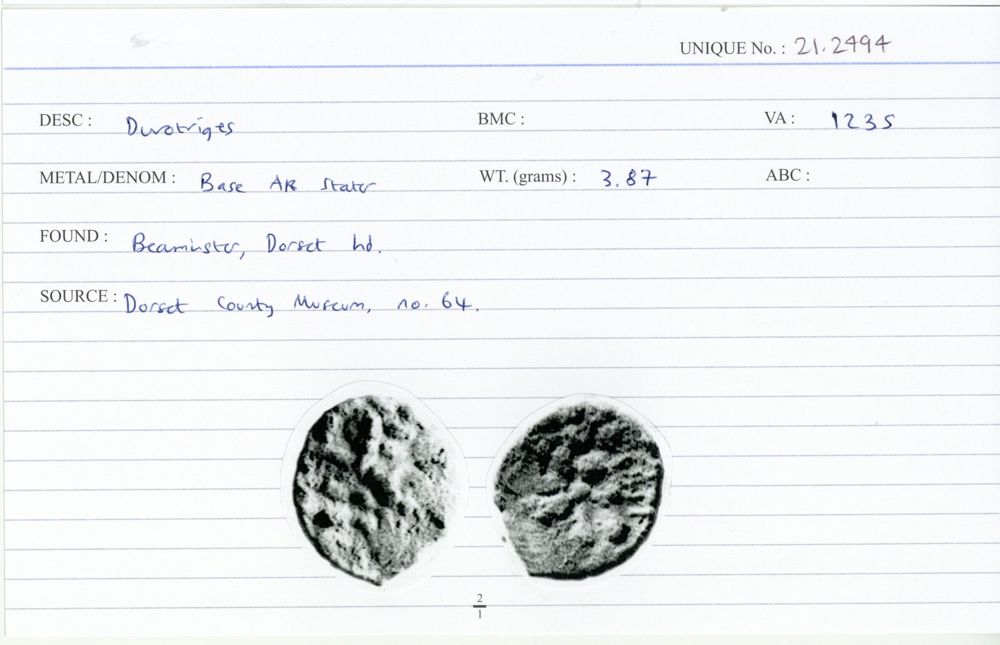 UNIQUE No. : 21.2494
DESC : Durotriges BMC : VA : 1235
METAL/DENOM : Base AR Stater WT. (grams) : 3.87 ABC :
FOUND : Beaminster, Dorset hd.
SOURCE : Dorset County Museum, no. 64.
2
1